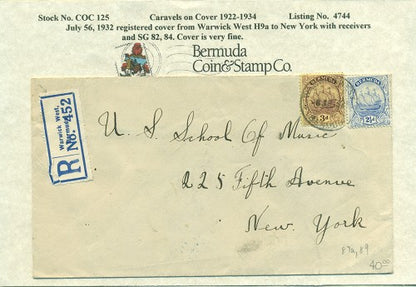 Stock No. COC 125 Caravels on Cover 1922-1934 Listing No. 4744
July 56, 1932 registered cover from Warwick West H9a to New York with receivers
and SG 82, 84. Cover is very fine.
Bermuda
Coin & Stamp Co.
BERMUDA
3d
BERMUDA
2½d
R
Warwick West,
Bermuda
No. 452
U. S. School Of Music
225 Fifth Avenue
New York
87a, 89
40.00